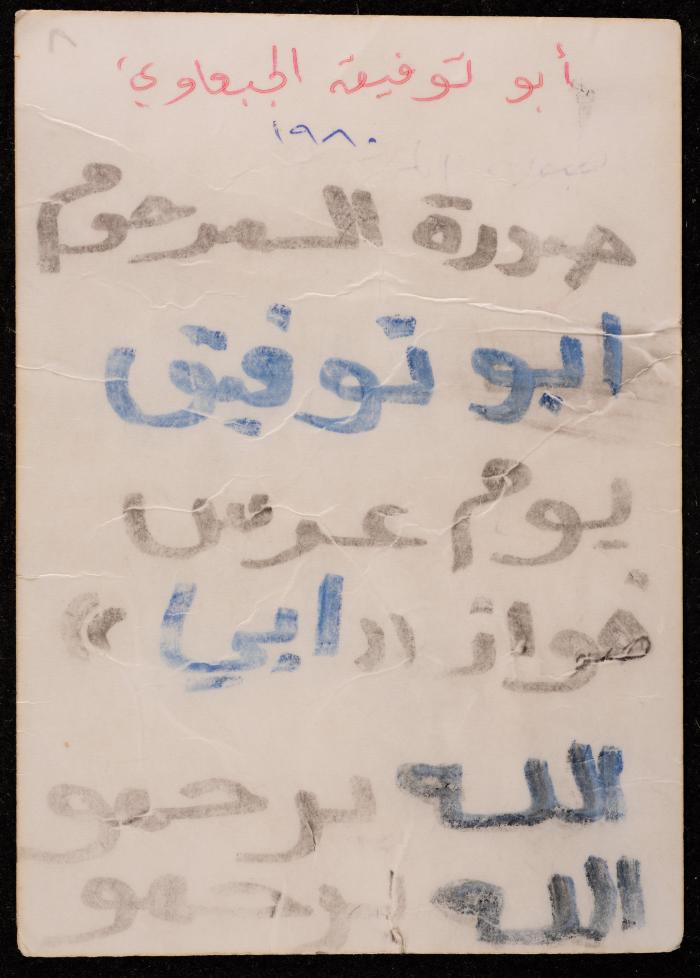 ٨
أبو توفيق الجبعاوي
١٩٨٠
صورة المرحوم
ابو توفيق
يوم عرس
فواز (( ابي ))
الله يرحمو
الله يرحمو